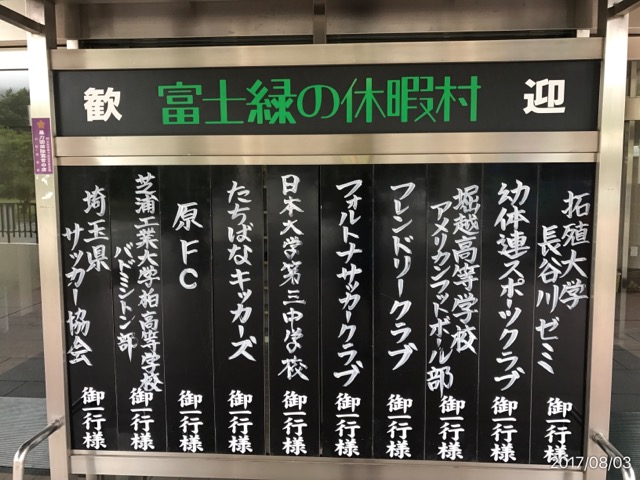 歓 富士緑の休暇村 迎
拓殖大学
長谷川ゼミ
御一行様
幼体連スポーツクラブ
御一行様
堀越高等学校
アメリカンフットボール部
御一行様
フレンドリークラブ
御一行様
フォルトナサッカークラブ
御一行様
日本大学第三中学校
御一行様
たちばなキッカーズ
御一行様
原FC
御一行様
芝浦工業大学柏高等学校
バドミントン部
御一行様
埼玉県
サッカー協会
御一行様
2017/08/03